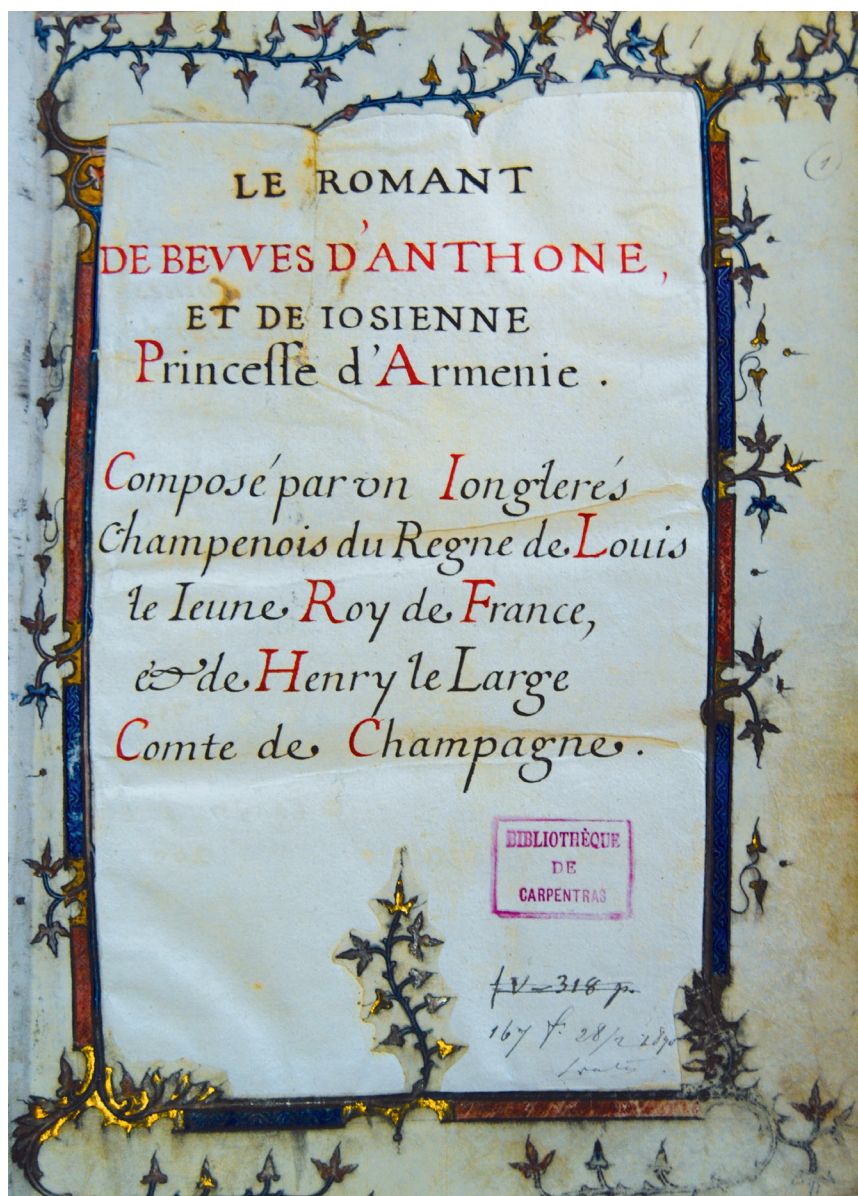 1
(1)
LE ROMANT
DE BEVVES D'ANTHONE,
ET DE IOSIENNE
Princeſſe d'Armenie .
Composé par vn Ionglerés
Champenois du Regne de Louis
le Ieune Roy de France,
& de Henry le Large
Comte de Champagne .
BIBLIOTHÈQUE
DE
CARPENTRAS
318 p.
167 f. 28/2